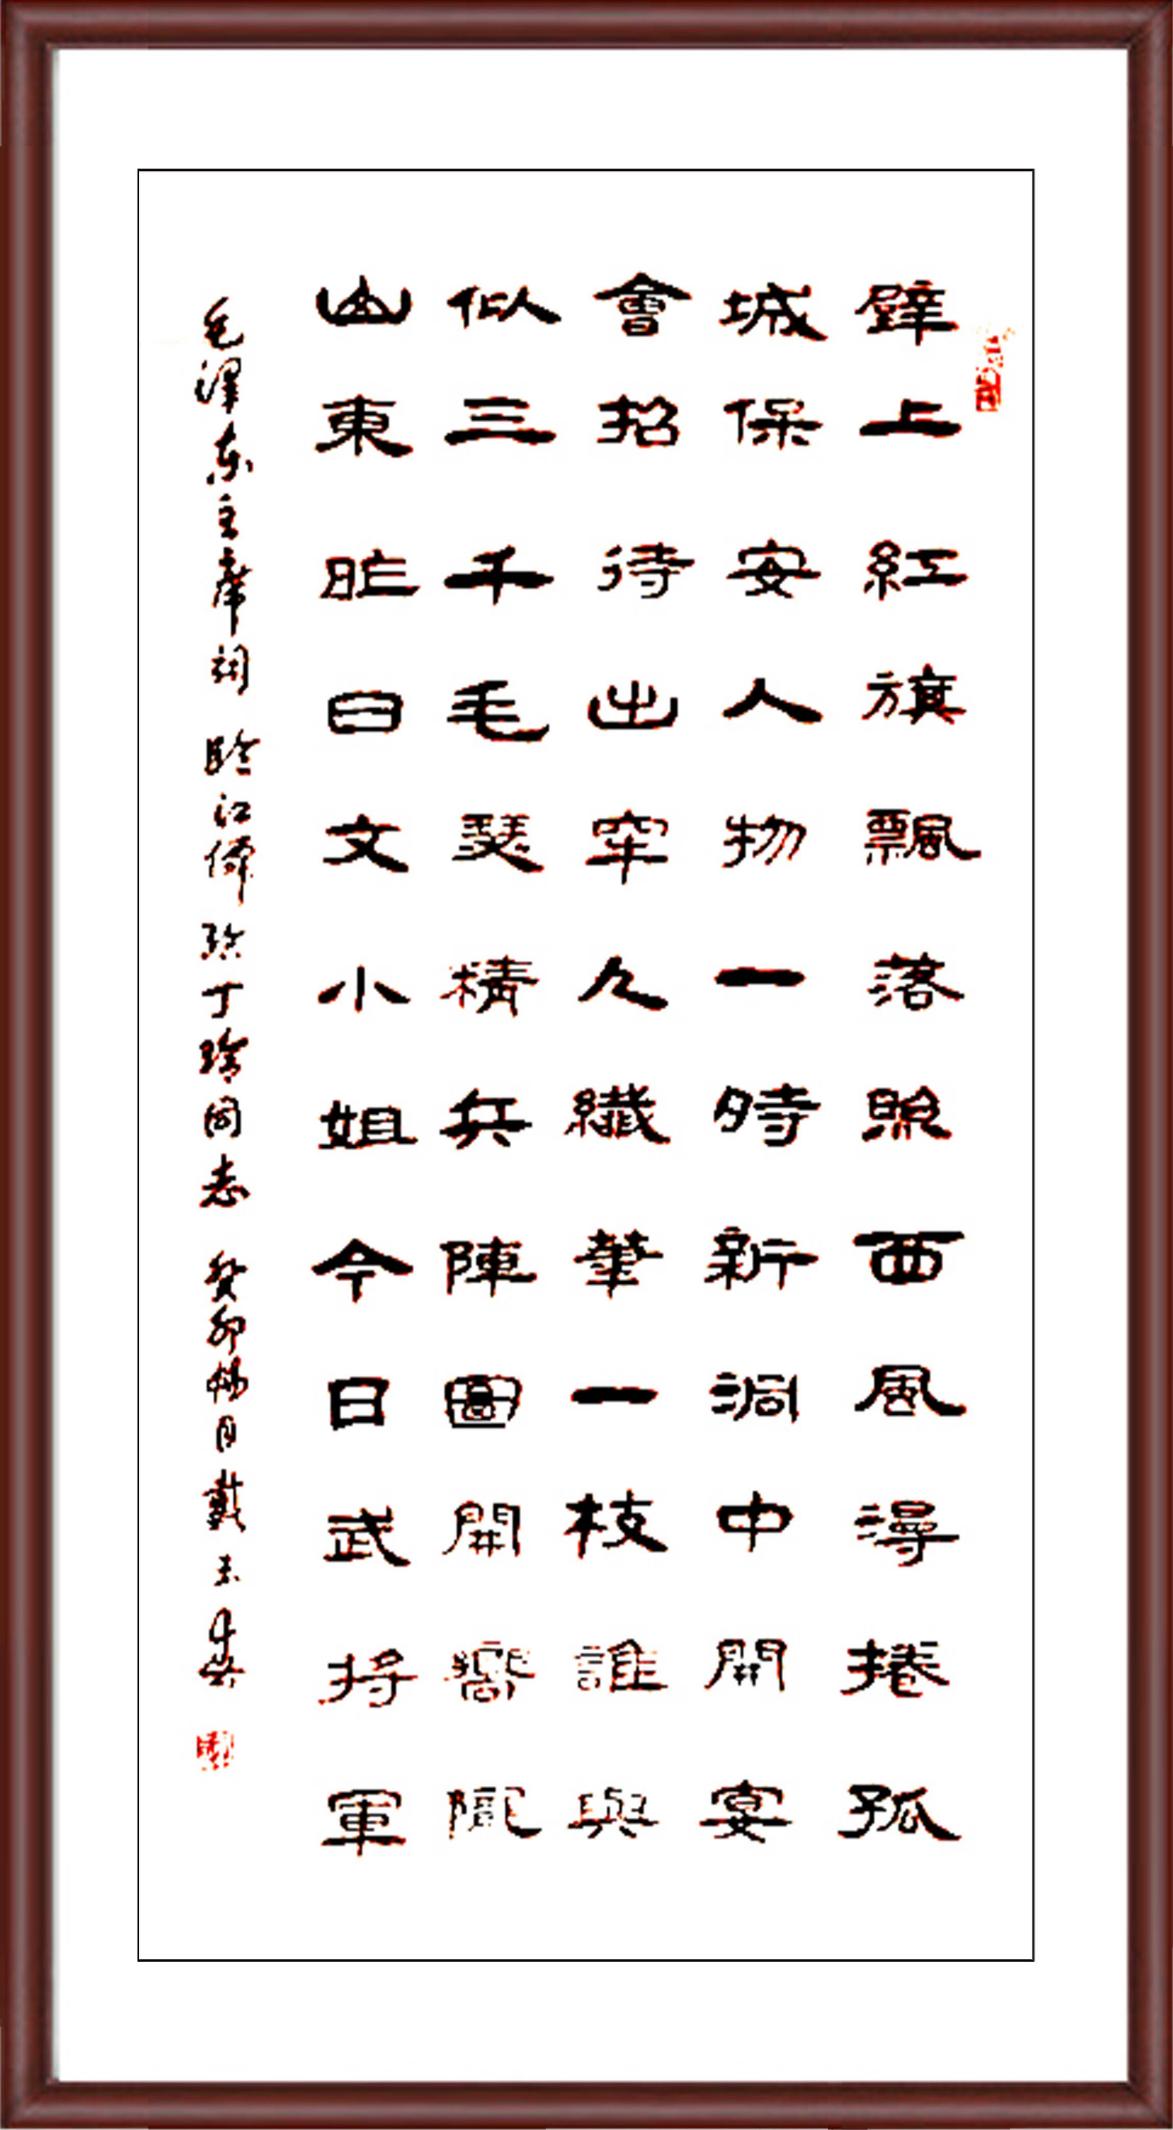 壁上紅旗飄落照西風漫捲孤
城保安人物一時新洞中開宴
會招待出牢人纖筆一枝誰與
似三千毛瑟精兵陣圖開嚮隴
山東昨日文小姐今日武將軍
毛澤东主席詞 臨江僊 給丁玲同志 癸卯暢月戴